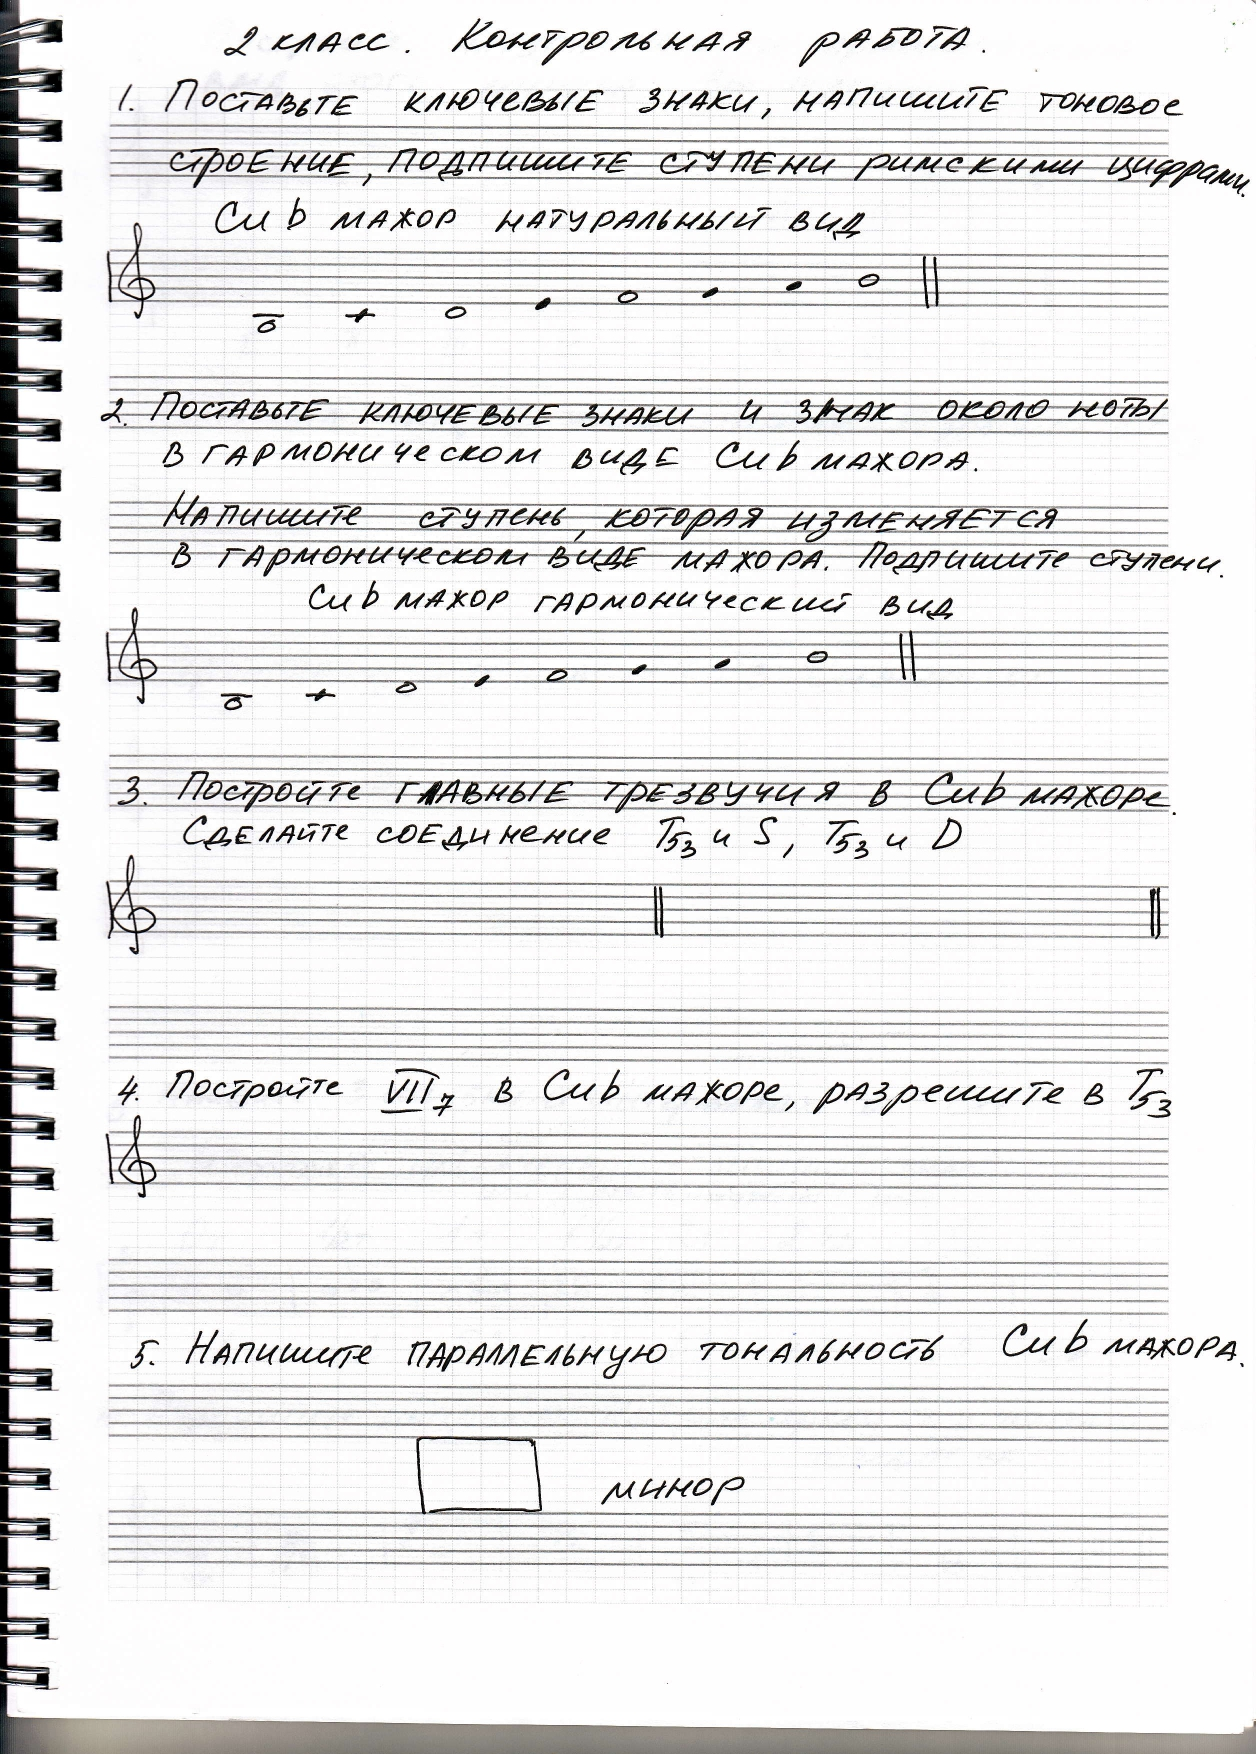 2 класс. Контрольная работа.
1. Поставьте ключевые знаки, напишите тоновое
строение, подпишите ступени римскими цифрами.
Си b мажор натуральный вид
2. Поставьте ключевые знаки и знак около ноты
в гармоническом виде Си b мажора.
Напишите ступень, которая изменяется
в гармоническом виде мажора. Подпишите ступени.
Си b мажор гармонический вид
3. Постройте главные трезвучия в Си b мажоре.
Сделайте соединение T53 и S, T53 и D
4. Постройте VII7 в Си b мажоре, разрешите в T53
5. Напишите параллельную тональность Си b мажора.
минор